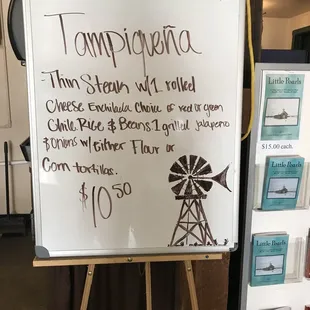 Tampiqueña
Thin Steak w/1 rolled
Cheese Enchilada Choice of red or green
Chile. Rice & Beans. 1 grilled jalapeño
& onions w/ Either Flour or
Corn tortillas.
$10.50
Little Pearls
$15.00 each
Little Pearls
Little Pearls